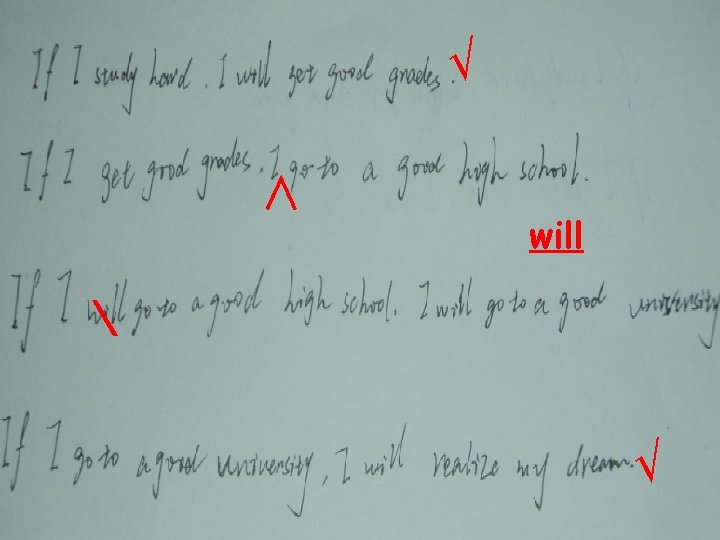 If I study hard. I will get good grades. √
If I get good grades. I go to a good high school.
will
If I will go to a good high school. I will go to a good university
If I go to a good university, I will realize my dream. √